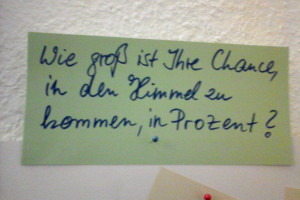 Wie groß ist Ihre Chance,
in den Himmel zu
kommen, in Prozent?